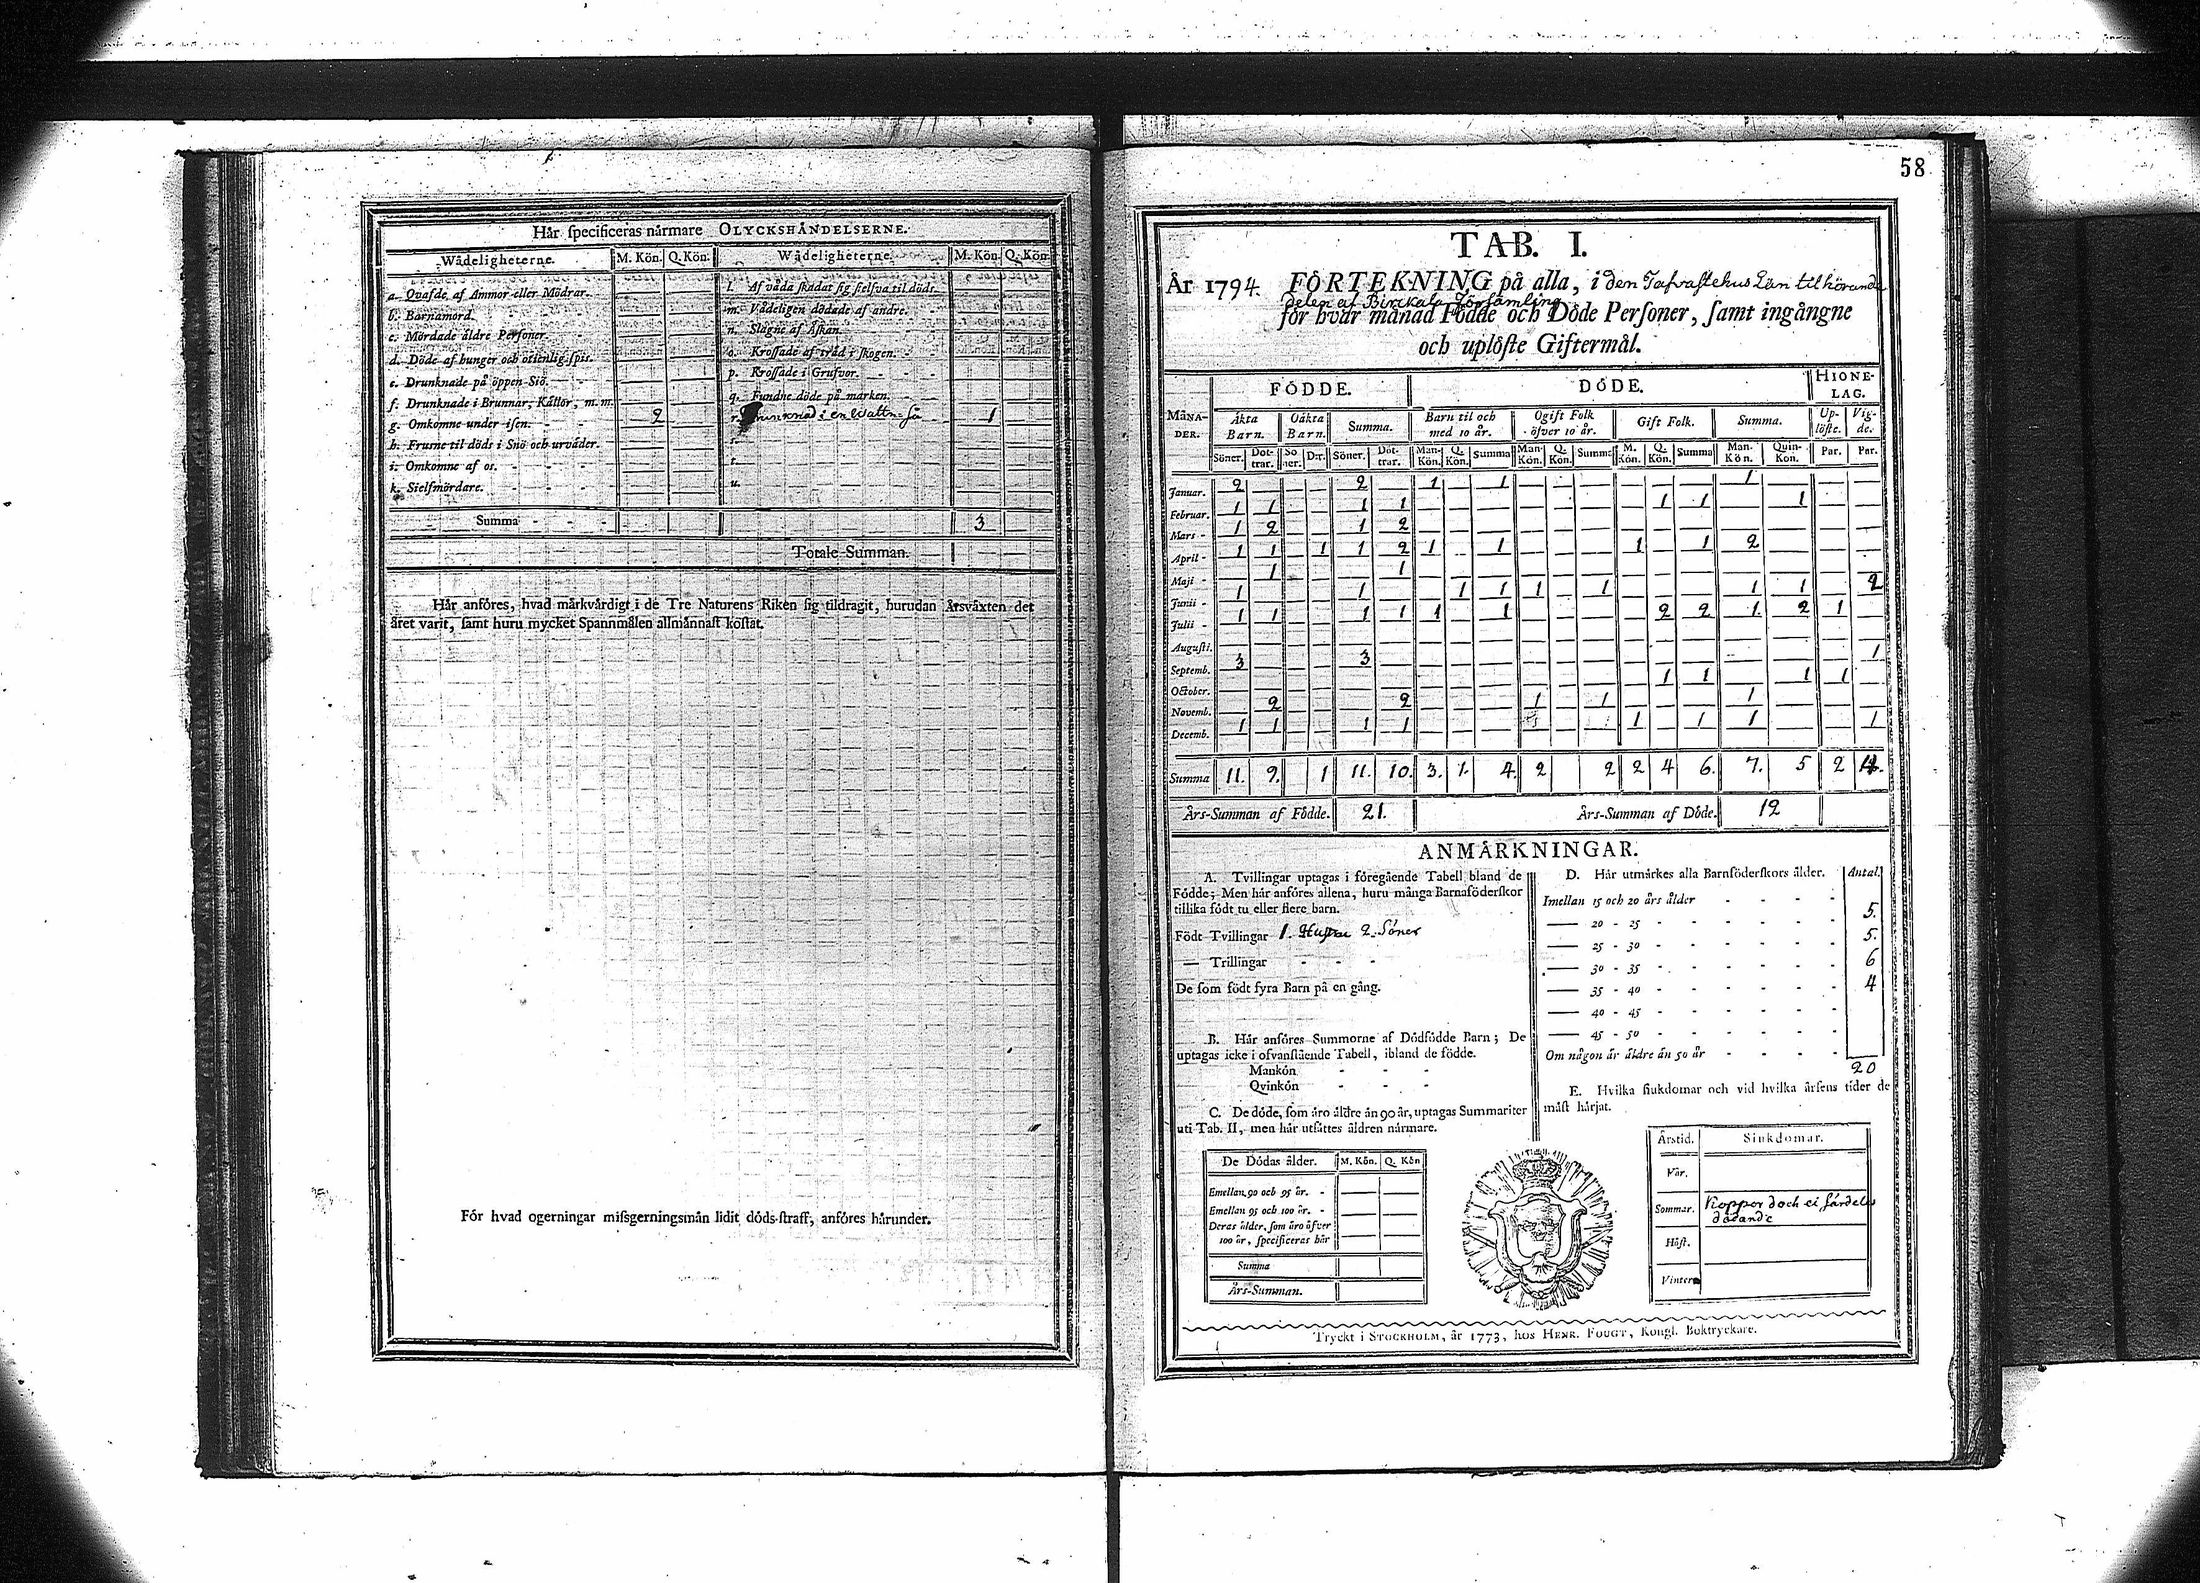 Här specificeras närmare OLYCKSHÄNDELSERNE.
Wådeligheterne. M. Kön. Q. Kön. Wådeligheterne. M. Kön. Q. Kön.
a. Qvafde af Ammor eller Mödrar. l. Af våda skadat sig sielfva til döds.
b. Barnamord. m. Vådeligen dödade af andre.
c. Mördade äldre Personer. n. Slagne af Åskan.
d. Döde af hunger och otienlig spis. o. Krossade af träd i skogen.
e. Drunknade på öppen Siö. p. Krossade i Grufvor.
f. Drunknade i Brunnar, Källor, m. m. q. Fundne döde på marken.
g. Omkomne under isen. 2 r. Drunknad i en Wattn så 1
h. Frusne til döds i Snö och urväder. s.
i. Omkomne af os. t.
k. Sielfmördare. u.
Summa 3
Totale Summan.
Här anföres, hvad märkvärdigt i de Tre Naturens Riken sig tildragit, hurudan Årsväxten det
året varit, samt huru mycket Spannmålen allmännast kostat.
För hvad ogerningar missgerningsmän lidit döds-straff, anföres härunder.
58
TAB. I.
År 1794. FÖRTEKNING på alla, i den Tafvastehus Län tilhörande
delen af Birckala Församling
för hvar månad Födde och Döde Personer, samt ingångne
och uplöste Giftermål.
MÅNADER. FÖDDE. DÖDE. HIONELAG.
Äkta Barn. Oäkta Barn. Summa. Barn til och med 10 år. Ogift Folk öfver 10 år. Gift Folk. Summa. Uplöste. Vigde.
Söner. Döttrar. Söner. D:r. Söner. Döttrar. Man-Kön. Q. Kön. Summa Man-Kön. Q. Kön. Summa M. Kön. Q. Kön. Summa Man-Kön. Quin-Kön. Par. Par.
Januar. 2 2 1 1 1
Februar. 1 1 1 1 1 1 1
Mars 1 2 1 2
April 1 1 1 1 2 1 1 1 1 2
Maji 1 1
Junii 1 1 1 1 1 1 1 1 2
Julii 1 1 1 1 1 1 2 2 1 2 1
Augusti.
Septemb. 3 3 1
October. 1 1 1 1
Novemb. 2 2 1 1 1
Decemb. 1 1 1 1 1 1 1 1
Summa 11. 9. 1 11. 10. 3. 1. 4. 2 2 2 4 6. 7. 5 2 4.
Års-Summan af Födde. 21. Års-Summan af Döde. 12
ANMÄRKNINGAR.
A. Tvillingar uptagas i föregående Tabell bland de
Födde; Men här anföres allena, huru många Barnaföderskor
tillika födt tu eller flere barn.
Födt Tvillingar 1. Hustru 2. Söner
— Trillingar
De som födt fyra Barn på en gång.
B. Här anföres Summorne af Dödfödde Barn; De
uptagas icke i ofvanstående Tabell, ibland de födde.
Mankön
Qvinkön
C. De döde, som äro äldre än 90 år, uptagas Summariter
uti Tab. II, men här utsättes åldren närmare.
De Dödas ålder. M. Kön. Q. Kön
Emellan 90 och 95 år.
Emellan 95 och 100 år.
Deras ålder, som äro öfver
100 år, specificeras här
Summa
Års-Summan.
D. Här utmärkes alla Barnföderskors ålder. Antal.
Imellan 15 och 20 års ålder
— 20 - 25 5.
— 25 - 30 5.
— 30 - 35 6
— 35 - 40 4
— 40 - 45
— 45 - 50
Om någon är äldre än 50 år
20
E. Hvilka siukdomar och vid hvilka årsens tider de
mäst härjat.
Årstid. Siukdomar.
Vår.
Sommar. Koppor doch ei särdeles
dödande
Höst.
Vinter
Tryckt i STOCKHOLM, år 1773, hos HENR. FOUGT, Kongl. Boktryckare.